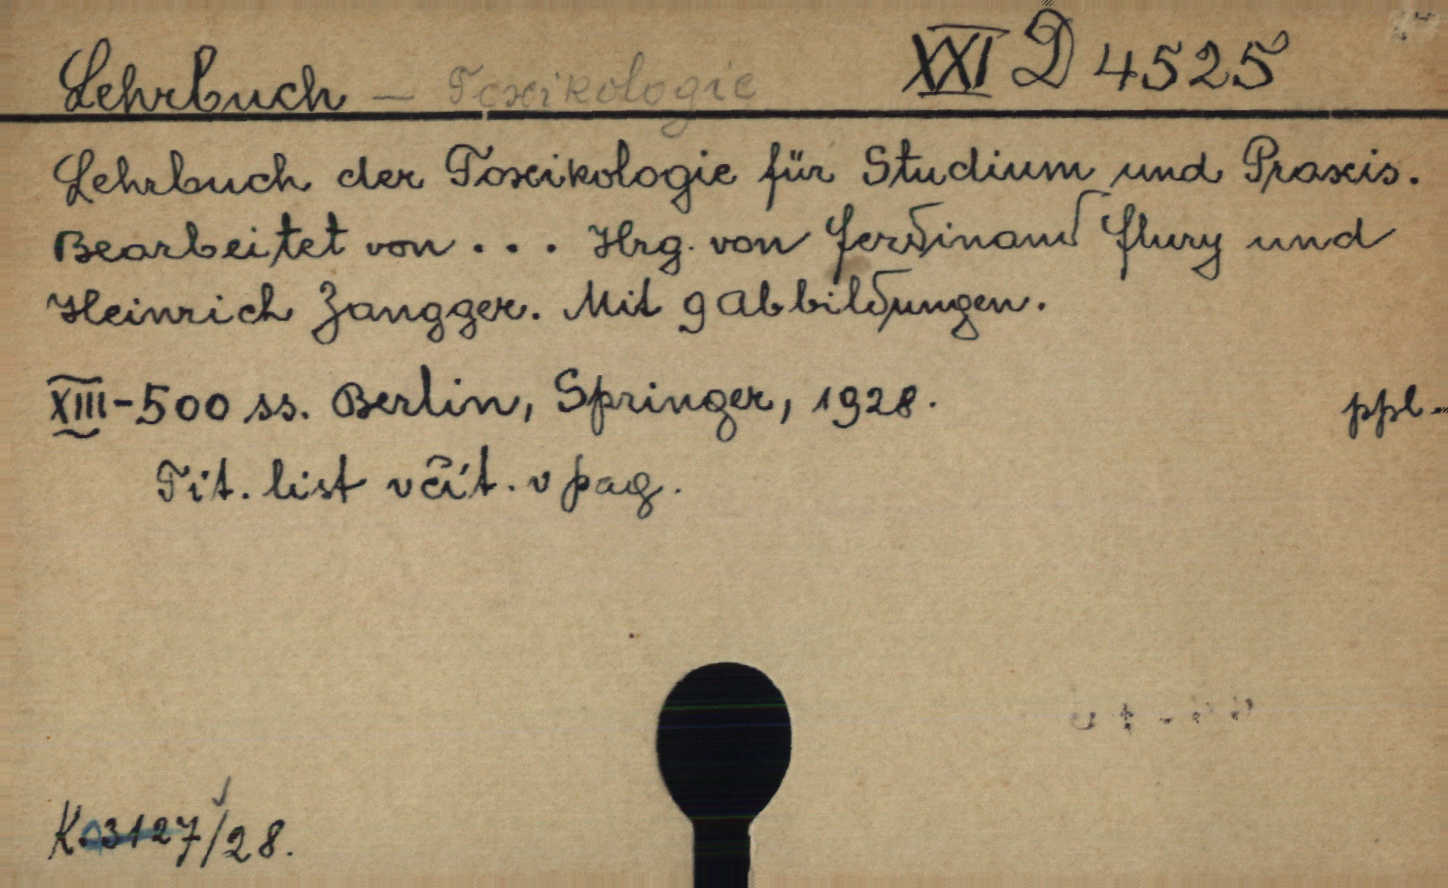 Lehrbuch — Toxikologie XXI D 4525
Lehrbuch der Toxikologie für Studium und Praxis.
Bearbeitet von . . . Hrg. von Ferdinand Flury und
Heinrich Zangger. Mit 9 Abbildungen.
XIII-500 ss. Berlin, Springer, 1928. ppl.
Tit. list včít. v pag.
K.3127/28.